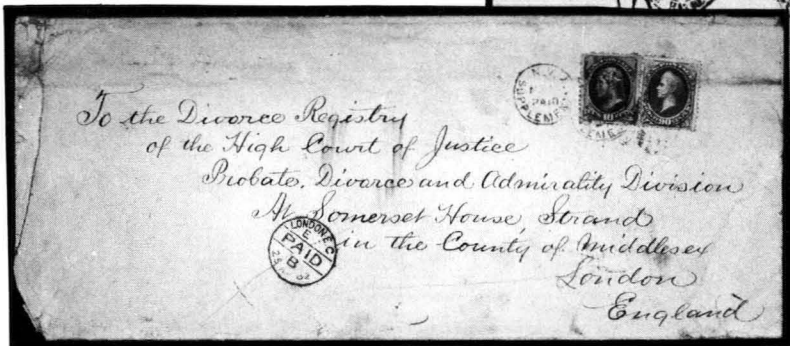 N.Y.
PAID
SUPPLEMEN
10
90
To the Divorce Registry
of the High Court of Justice
Probate, Divorce and Admirality Division
At Somerset House, Strand
in the County of Middlesex
London
England
LONDON E.C
E
PAID
B
82